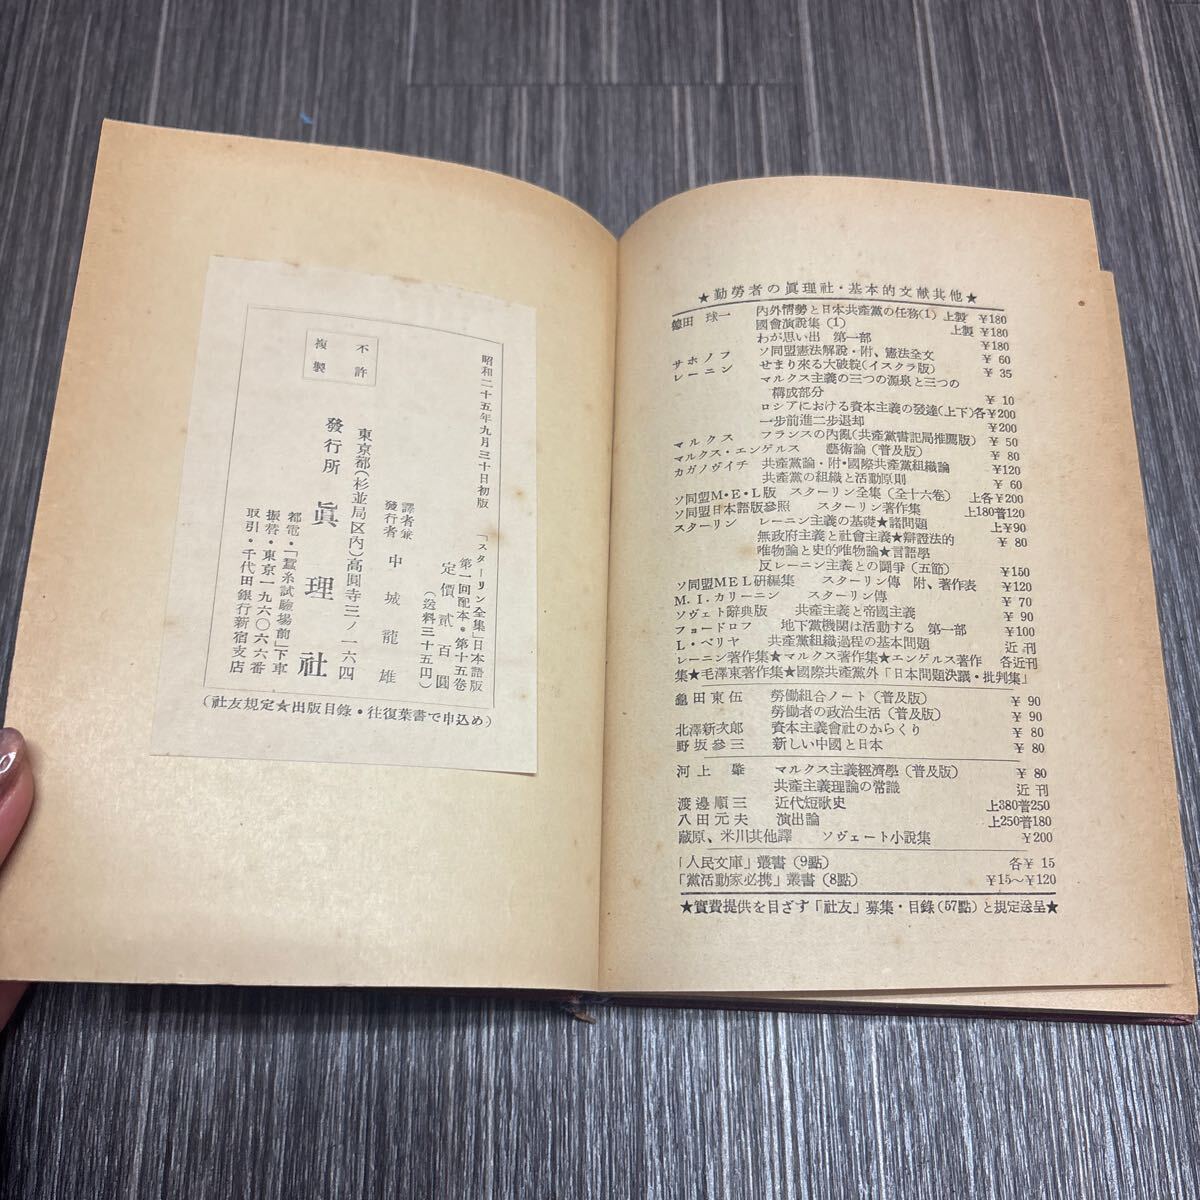 不許
複製
昭和二十五年九月三十日初版
「スターリン全集」日本語版
第一回配本・第十五卷
定價貳百圓
(送料三十五円)
譯者兼
發行者 中城龍雄
東京都(杉並局区内)高圓寺三ノ一六四
發行所 眞理社
都電・「蠶糸試驗場前」下車
振替・東京一九六〇六六番
取引・千代田銀行新宿支店
(社友規定★出版目録・往復葉書で申込め)
★勤勞者の眞理社・基本的文献其他★
德田 球一 內外情勢と日本共產黨の任務(1) 上製 ¥180
國會演說集(1) 上製 ¥180
わが思い出 第一部 ¥180
サホノフ ソ同盟憲法解說・附、憲法全文 ¥ 60
レーニン せまり來る大破綻(イスクラ版) ¥ 35
マルクス主義の三つの源泉と三つの
構成部分 ¥ 10
ロシアにおける資本主義の發達(上下)各¥200
一步前進二步退却 ¥200
マルクス フランスの內亂(共產黨書記局推薦版) ¥ 50
マルクス・エンゲルス 藝術論(普及版) ¥ 80
カガノヴイチ 共產黨論・附・國際共產黨組織論 ¥120
共產黨の組織と活動原則 ¥ 60
ソ同盟M・E・L版 スターリン全集(全十六卷) 上各¥200
ソ同盟日本語版參照 スターリン著作集 上180普120
スターリン レーニン主義の基礎★諸問題 上¥90
無政府主義と社會主義★辯證法的 ¥ 80
唯物論と史的唯物論★言語學
反レーニン主義との闘爭(五節) ¥150
ソ同盟MEL研編集 スターリン傳 附、著作表 ¥120
M.I.カリーニン スターリン傳 ¥ 70
ソヴェト辭典版 共產主義と帝國主義 ¥ 90
フョードロフ 地下黨機関は活動する 第一部 ¥100
L・ベリヤ 共產黨組織過程の基本問題 近刊
レーニン著作集★マルクス著作集★エンゲルス著作 各近刊
集★毛澤東著作集★國際共產黨外「日本問題決議・批判集」
龜田東伍 勞働組合ノート(普及版) ¥ 90
勞働者の政治生活(普及版) ¥ 90
北澤新次郎 資本主義會社のからくり ¥ 80
野坂參三 新しい中國と日本 ¥ 80
河上 肇 マルクス主義經濟學(普及版) ¥ 80
共產主義理論の常識 近刊
渡邊順三 近代短歌史 上380普250
八田元夫 演出論 上250普180
藏原、米川其他譯 ソヴェート小說集 ¥200
「人民文庫」叢書(9點) 各¥ 15
「黨活動家必携」叢書(8點) ¥15〜¥120
★實費提供を目ざす「社友」募集・目錄(57點)と規定送呈★